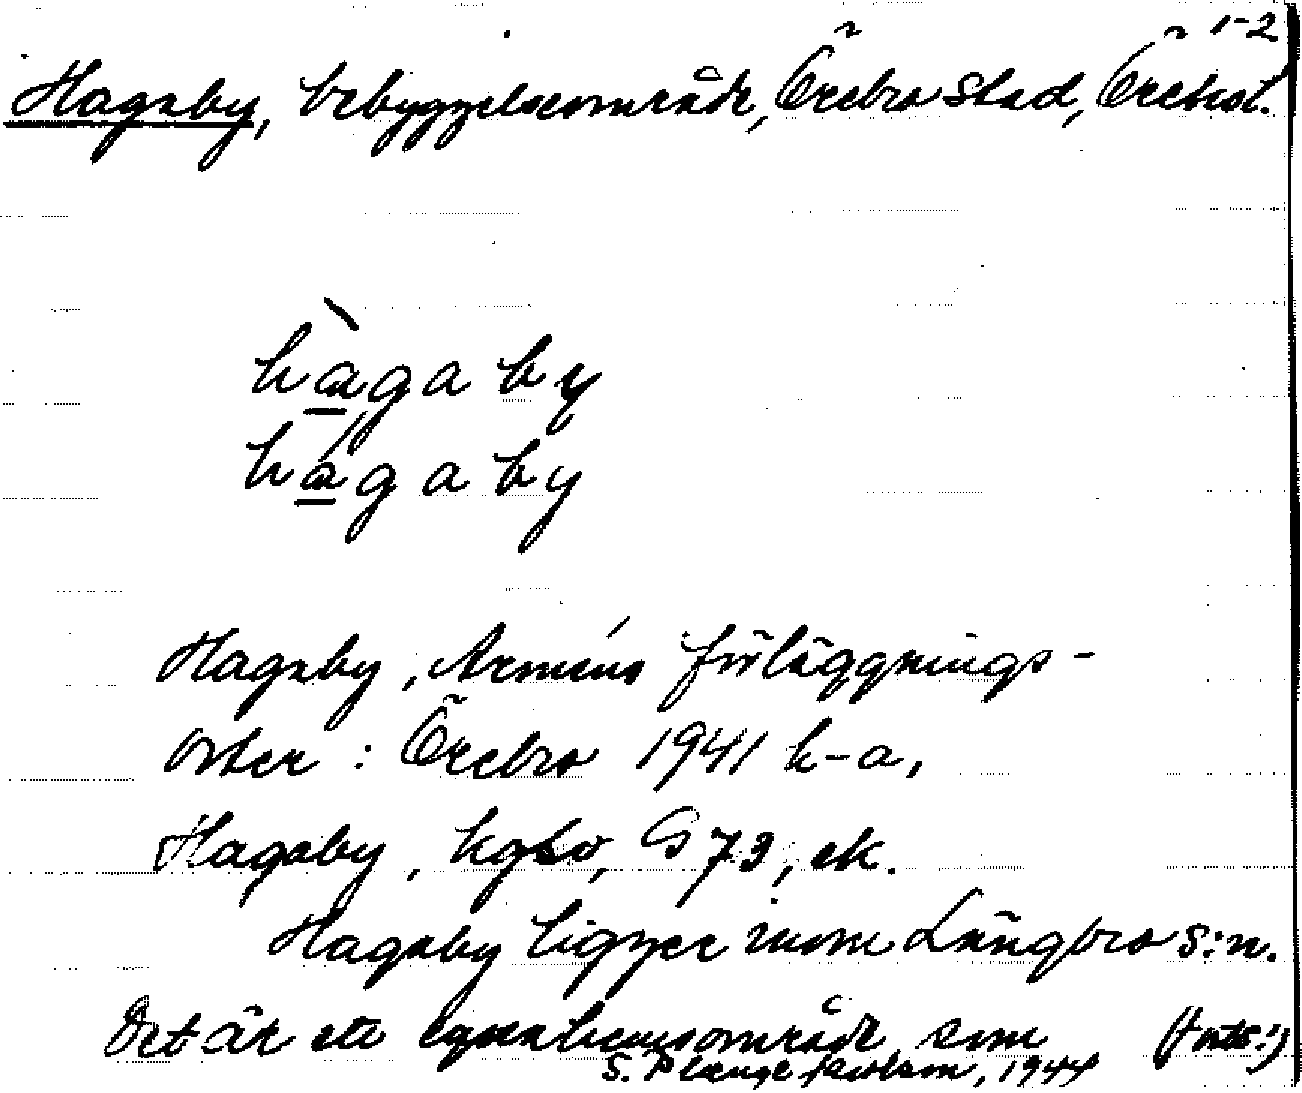 1-2
Hagaby, bebyggelseområde, Örebro stad, Örebrol.
hàgaby
hágaby
Hagaby, Arméns förläggnings-
orter: Örebro 1941 h-a,
Hagaby, kgbo, G 73, ek.
Hagaby ligger inom Längbro s:n.
Det är ett egnahemsområde som (forts.)
S. 1944